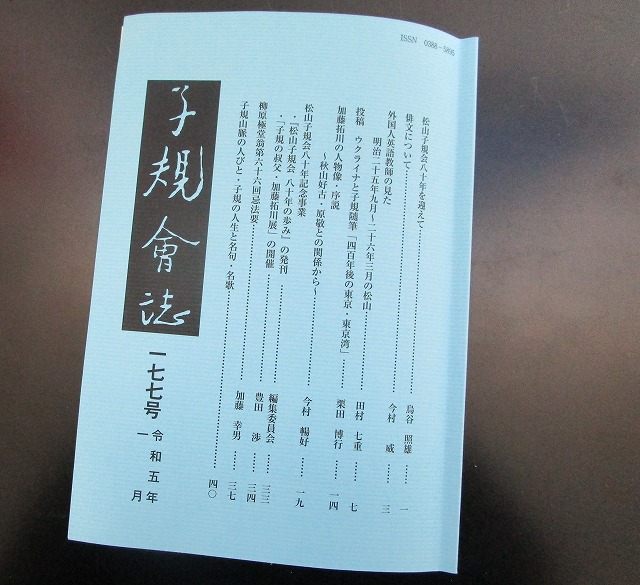 ISSN 0388-5895
松山子規会八十年を迎えて……烏谷 照雄……一
俳文について……今村 威……三
外国人英語教師の見た
明治二十五年九月～二十六年三月の松山……田村 七重……七
投稿 ウクライナと子規随筆「四百年後の東京・東京湾」……栗田 博行……一四
加藤拓川の人物像・序説
～秋山好古・原敬との関係から～……今村 暢好……一九
松山子規会八十年記念事業
・『松山子規会 八十年の歩み』の発刊……編集委員会……三三
・「子規の叔父・加藤拓川展」の開催……豊田 渉……三四
柳原極堂翁第六十六回忌法要……加藤 幸男……三七
子規山脈の人びと・子規の人生と名句・名歌……四〇
子規會誌
一七七号
令和五年
一月